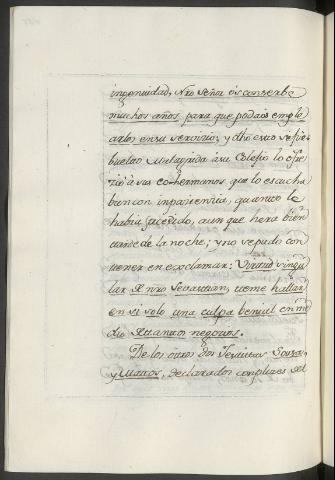 ingenuidad, Nro Señor os conserbe
muchos años, para que podais emple
arlos en su servicio; y dho esto se fue
buelto a su Colegio lo
à sus cohermanos, que lo escucha
ban con impaciencia, quanto le
habia sucedido, aunque hera bien
tarde de la noche; y no se pudo con
tener en exclamar: Virtud singu
lar nro Sebastian, tiene hallar
en si solo una culpa benial en me
dio de tantos negocios.
De los otros dos Jesuitas Sousa,
y Mattos, declarados complices del